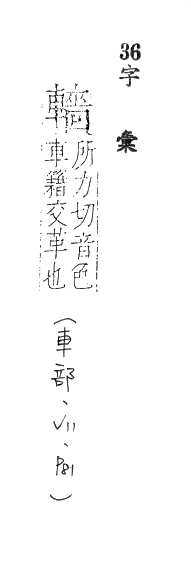 36字彙
轖
所力切音色
車籍交革也
(車部、VII、P81)